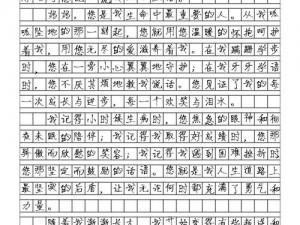 妈妈，您是我生命中最重要的人。从我呱
呱坠地的那一刻起，您就用您温暖的怀抱呵护
着我，用您无尽的爱滋养着我。在我蹒跚学步
时，您在一旁小心翼翼地守护；在我牙牙学语
时，您不厌其烦地教我说话。您见证了我的每
一次成长与进步，每一个欢笑与泪水。
我记得小时候生病时，您焦急的眼神和彻
夜未眠的陪伴；我记得我取得好成绩时，您那
骄傲而欣慰的笑容；我记得我遇到困难挫折时
您那坚定而鼓励的话语。您就是我人生道路上
最坚实的后盾，让我无论何时都充满了勇气和
力量。
随着我渐渐长大，我开始